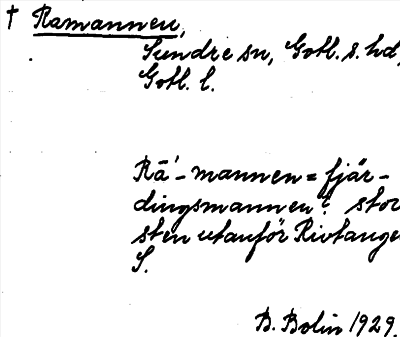 † Ramannen,
Sundre sn, Gotl. s. hd,
Gotl. l.
Rā'-mannen = fjär-
dingsmannen? stor
sten utanför Rivtange
S.
B. Bolin 1929.